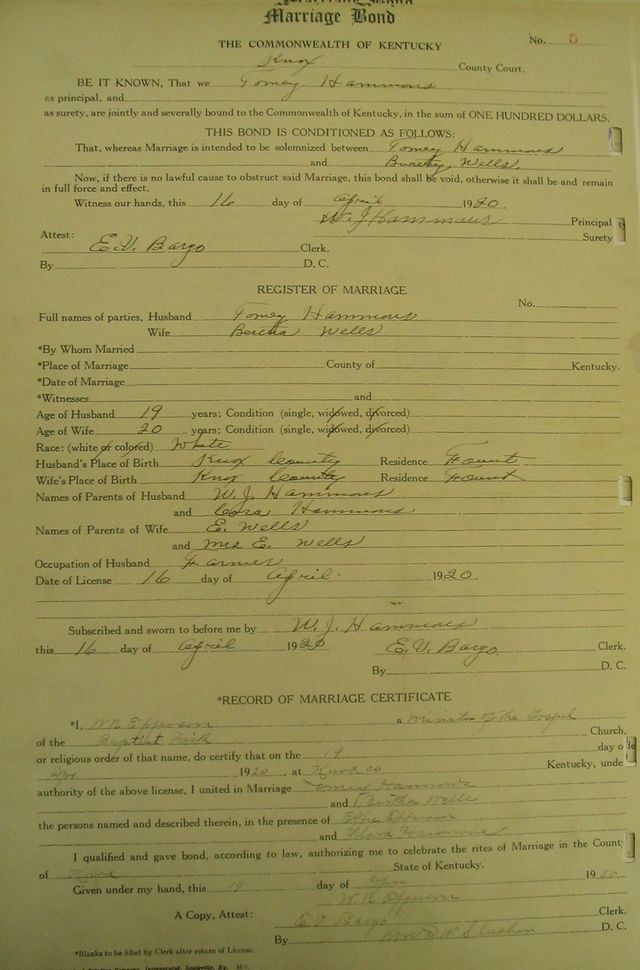 Marriage Bond
THE COMMONWEALTH OF KENTUCKY
No. 5
Knox County Court.
BE IT KNOWN, That we Tomey Hammons
as principal, and
as surety, are jointly and severally bound to the Commonwealth of Kentucky, in the sum of ONE HUNDRED DOLLARS.
THIS BOND IS CONDITIONED AS FOLLOWS:
That, whereas Marriage is intended to be solemnized between Tomey Hammons
and Wells.
Now, if there is no lawful cause to obstruct said Marriage, this bond shall be void, otherwise it shall be and remain
in full force and effect.
Witness our hands, this 16 day of April 1920
W. J. Hammons Principal
Surety
Attest:
E. V. Bargo Clerk.
By D. C.
REGISTER OF MARRIAGE
No.
Full names of parties, Husband Tomey Hammons
Wife Bertha Wells
*By Whom Married
*Place of Marriage County of Kentucky.
*Date of Marriage
*Witnesses and
Age of Husband 19 years; Condition (single, widowed, divorced)
Age of Wife 20 years; Condition (single, widowed, divorced)
Race: (white or colored) White
Husband's Place of Birth Knox County Residence
Wife's Place of Birth Knox County Residence
Names of Parents of Husband W. J. Hammons
and Cora Hammons
Names of Parents of Wife E. Wells
and Mrs E. Wells
Occupation of Husband Farmer
Date of License 16 day of April 1920.
Subscribed and sworn to before me by W. J. Hammons
this 16 day of April 1920 E. V. Bargo Clerk.
By D. C.
*RECORD OF MARRIAGE CERTIFICATE
*I, W R Epperson a Minister of the Gospel
of the Baptist Faith Church,
or religious order of that name, do certify that on the 19 day o
Apr 1920, at Knox co Kentucky, unde
authority of the above license, I united in Marriage Tomey Hammons
and Bertha Wells
the persons named and described therein, in the presence of Epperson
and Flora Hammons
I qualified and gave bond, according to law, authorizing me to celebrate the rites of Marriage in the Count
of Knox State of Kentucky.
Given under my hand, this 19 day of Apr 1920
W. R. Epperson
A Copy, Attest: E. V. Bargo Clerk.
By D. C.
*Blanks to be filled by Clerk after return of License.